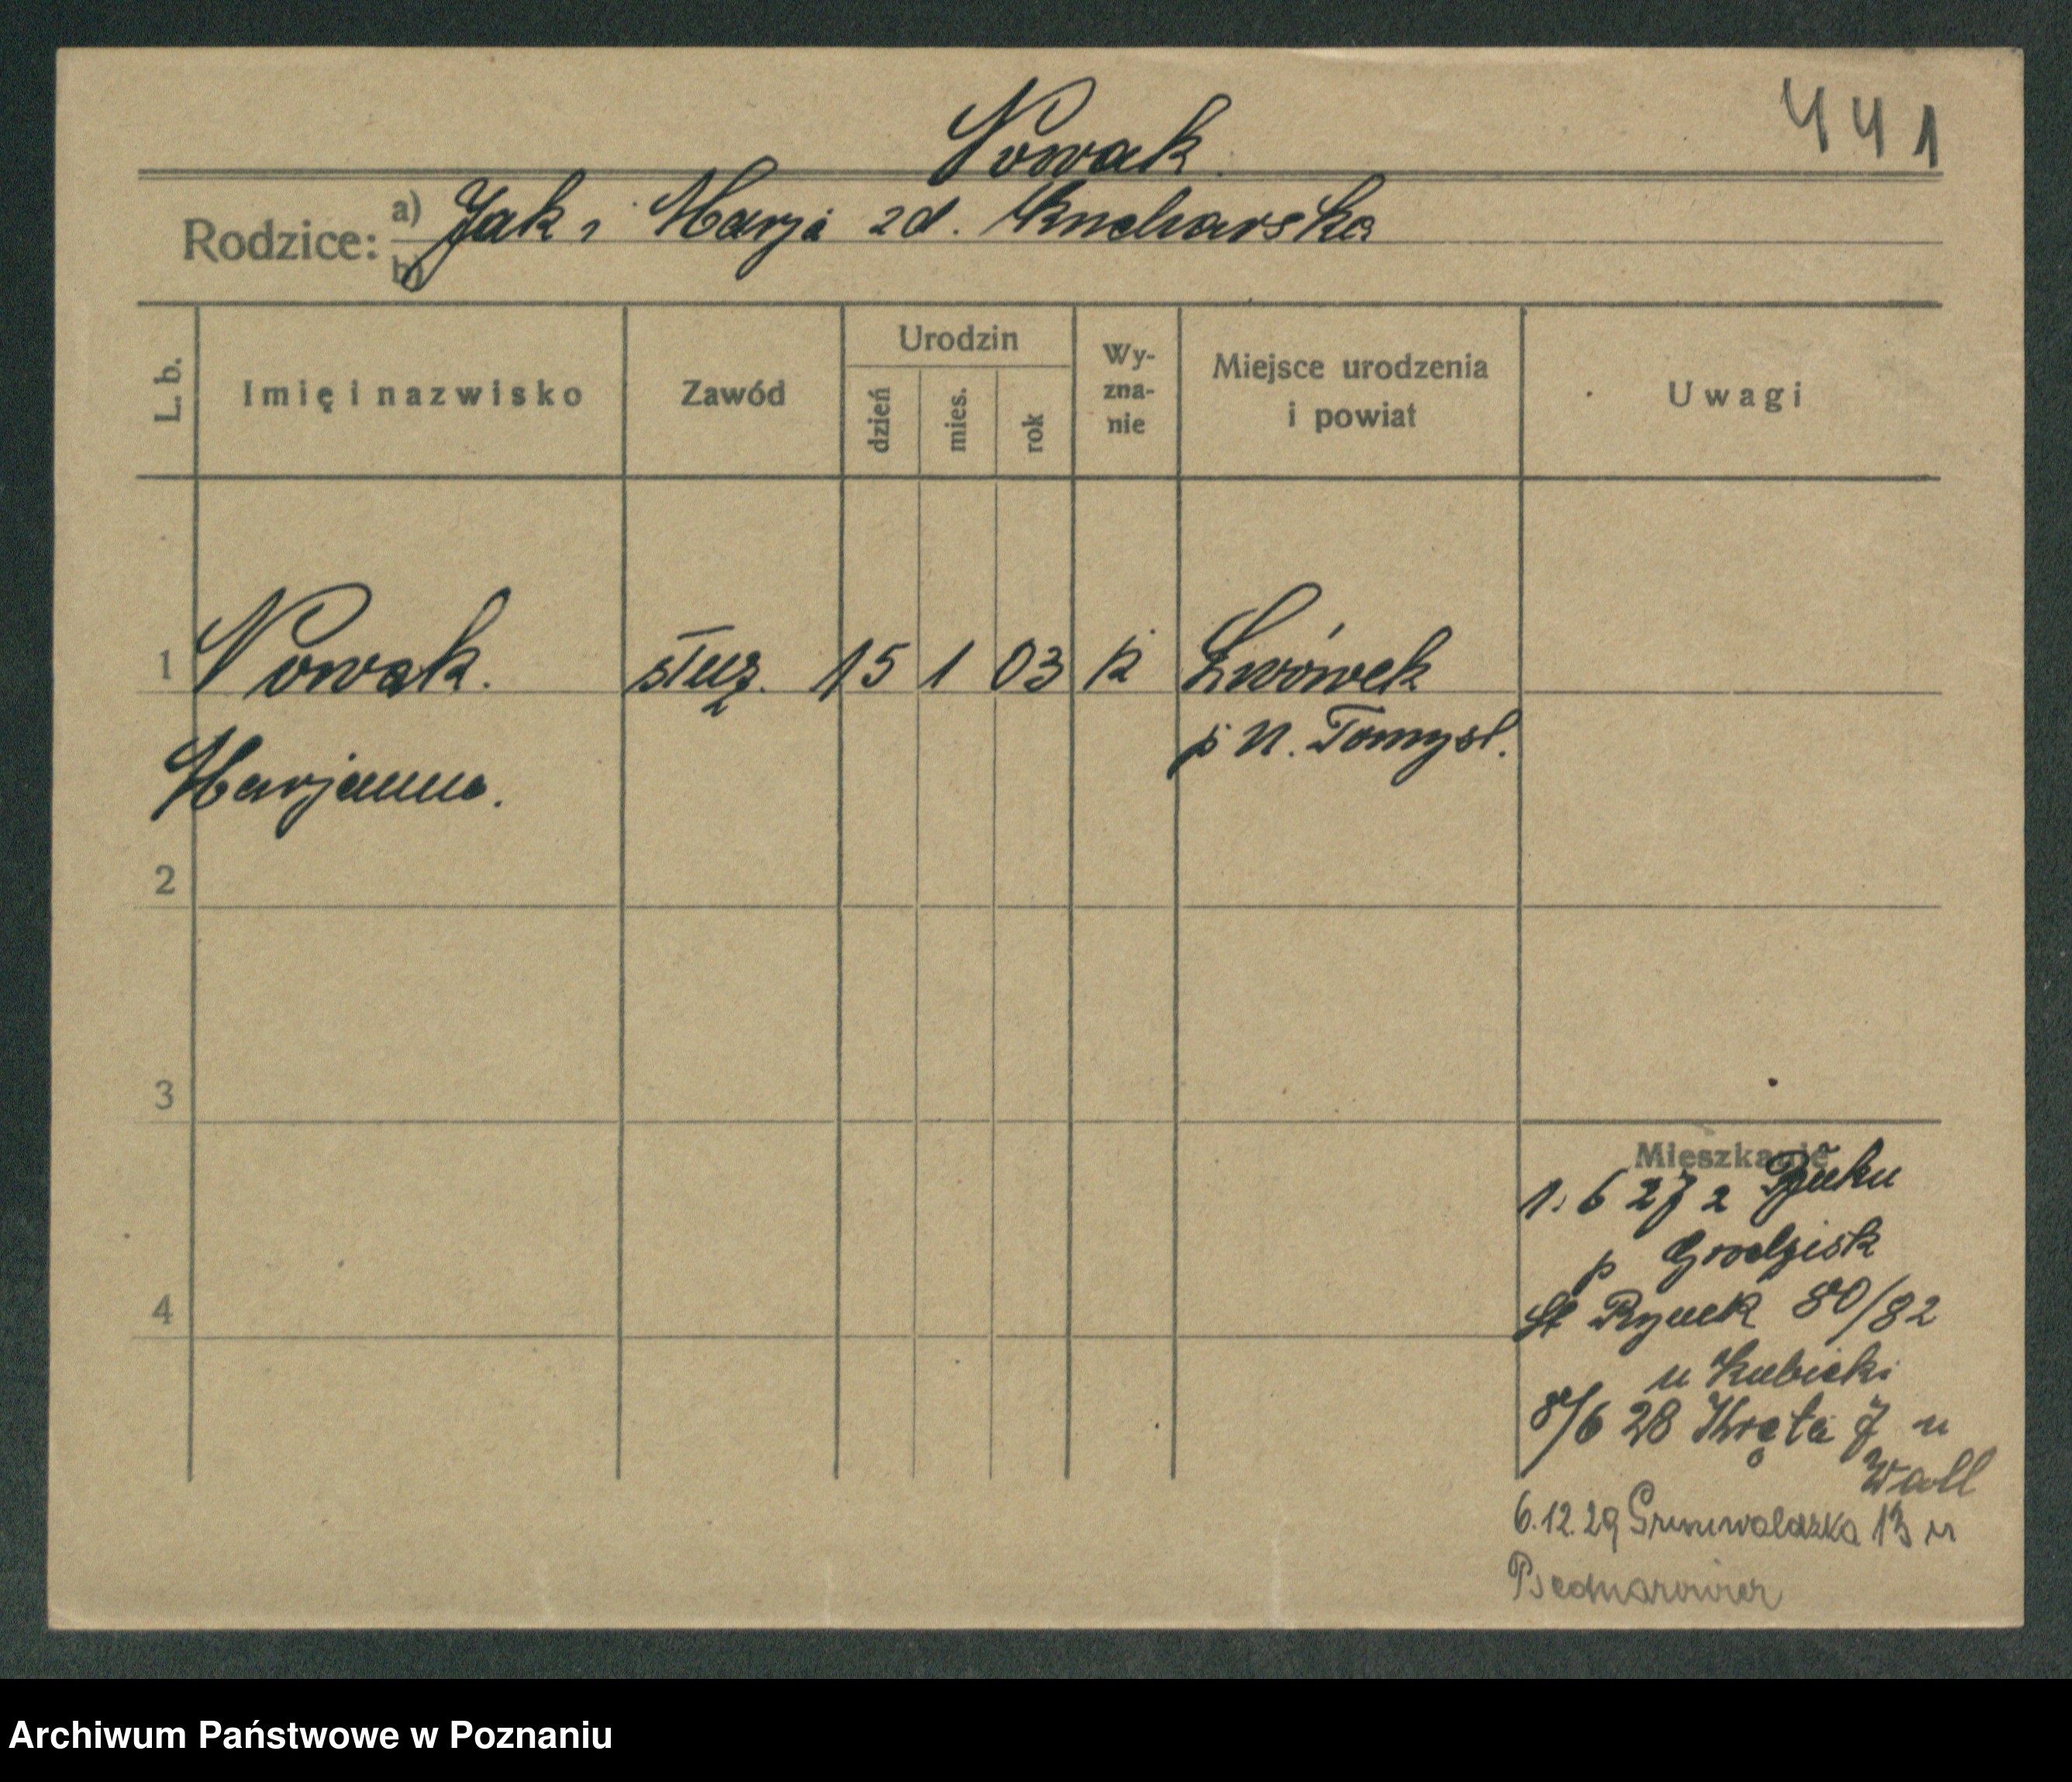 Nowak.
441
Rodzice: a) Jak i Marja zd. Kucharska
b)
L. b.
Imię i nazwisko
Zawód
Urodzin
dzień
mies.
rok
Wy-
zna-
nie
Miejsce urodzenia
i powiat
Uwagi
1 Nowak. służ. 15 1 03 k Lwówek
p N. Tomysl.
Marjanna.
2
3
4
Mieszkanie
1. 6 27 z Buku
p Grodzisk
St Rynek 80/82
u Kubicki
8/6 28 Kręta 7 u
Woll
6.12.29 Grunwaldzka 13 u
Archiwum Państwowe w Poznaniu